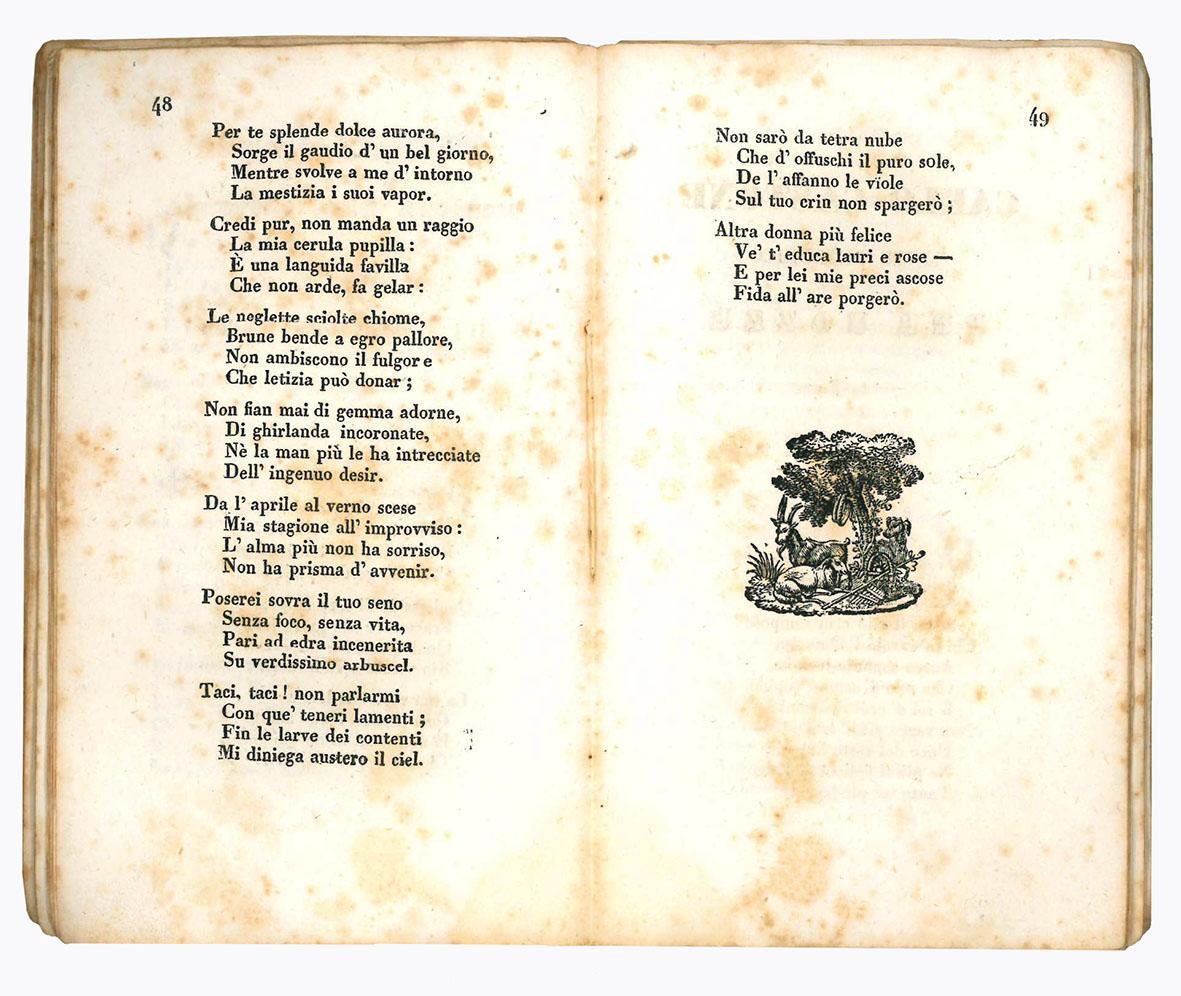 48
Per te splende dolce aurora,
Sorge il gaudio d' un bel giorno,
Mentre svolve a me d' intorno
La mestizia i suoi vapor.
Credi pur, non manda un raggio
La mia cerula pupilla :
È una languida favilla
Che non arde, fa gelar :
Le neglette sciolte chiome,
Brune bende a egro pallore,
Non ambiscono il fulgore
Che letizia può donar ;
Non fian mai di gemma adorne,
Di ghirlanda incoronate,
Nè la man più le ha intrecciate
Dell' ingenuo desir.
Da l' aprile al verno scese
Mia stagione all' improvviso :
L' alma più non ha sorriso,
Non ha prisma d' avvenir.
Poserei sovra il tuo seno
Senza foco, senza vita,
Pari ad edra incenerita
Su verdissimo arbuscel.
Taci, taci ! non parlarmi
Con que' teneri lamenti ;
Fin le larve dei contenti
Mi diniega austero il ciel.
49
Non sarò da tetra nube
Che d' offuschi il puro sole,
De l' affanno le viole
Sul tuo crin non spargerò ;
Altra donna più felice
Ve' t' educa lauri e rose —
E per lei mie preci ascose
Fida all' are porgerò.